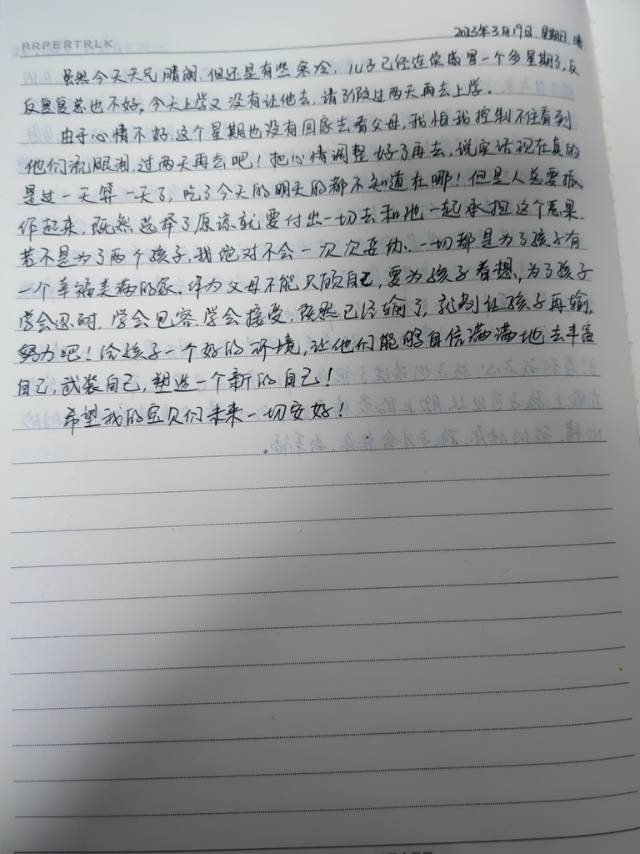 PRPERTRLK
2023年3月19日 星期日 晴
虽然今天天气晴朗,但还是有些寒冷,儿子已经连续感冒一个多星期了,反
反复复总也不好,今天上学又没有让他去,请了假过两天再去上学。
由于心情不好,这个星期也没有回家去看父母,我怕我控制不住看到
他们流眼泪,过两天再去吧!把心情调整好了再去,说实话现在真的
是过一天算一天了,吃了今天的明天的都不知道在哪!但是人总要振
作起来,既然选择了原谅就要付出一切去和他一起承担这个后果.
若不是为了两个孩子,我绝对不会一次次妥协.一切都是为了孩子有
一个幸福美满的家.作为父母不能只顾自己,要为孩子着想,为了孩子
学会忍耐,学会包容,学会接受,既然已经输了,就别让孩子再输,
努力吧!给孩子一个好的环境,让他们能够自信满满地去丰富
自己,武装自己,塑造一个新的自己!
希望我的宝贝们未来一切安好!